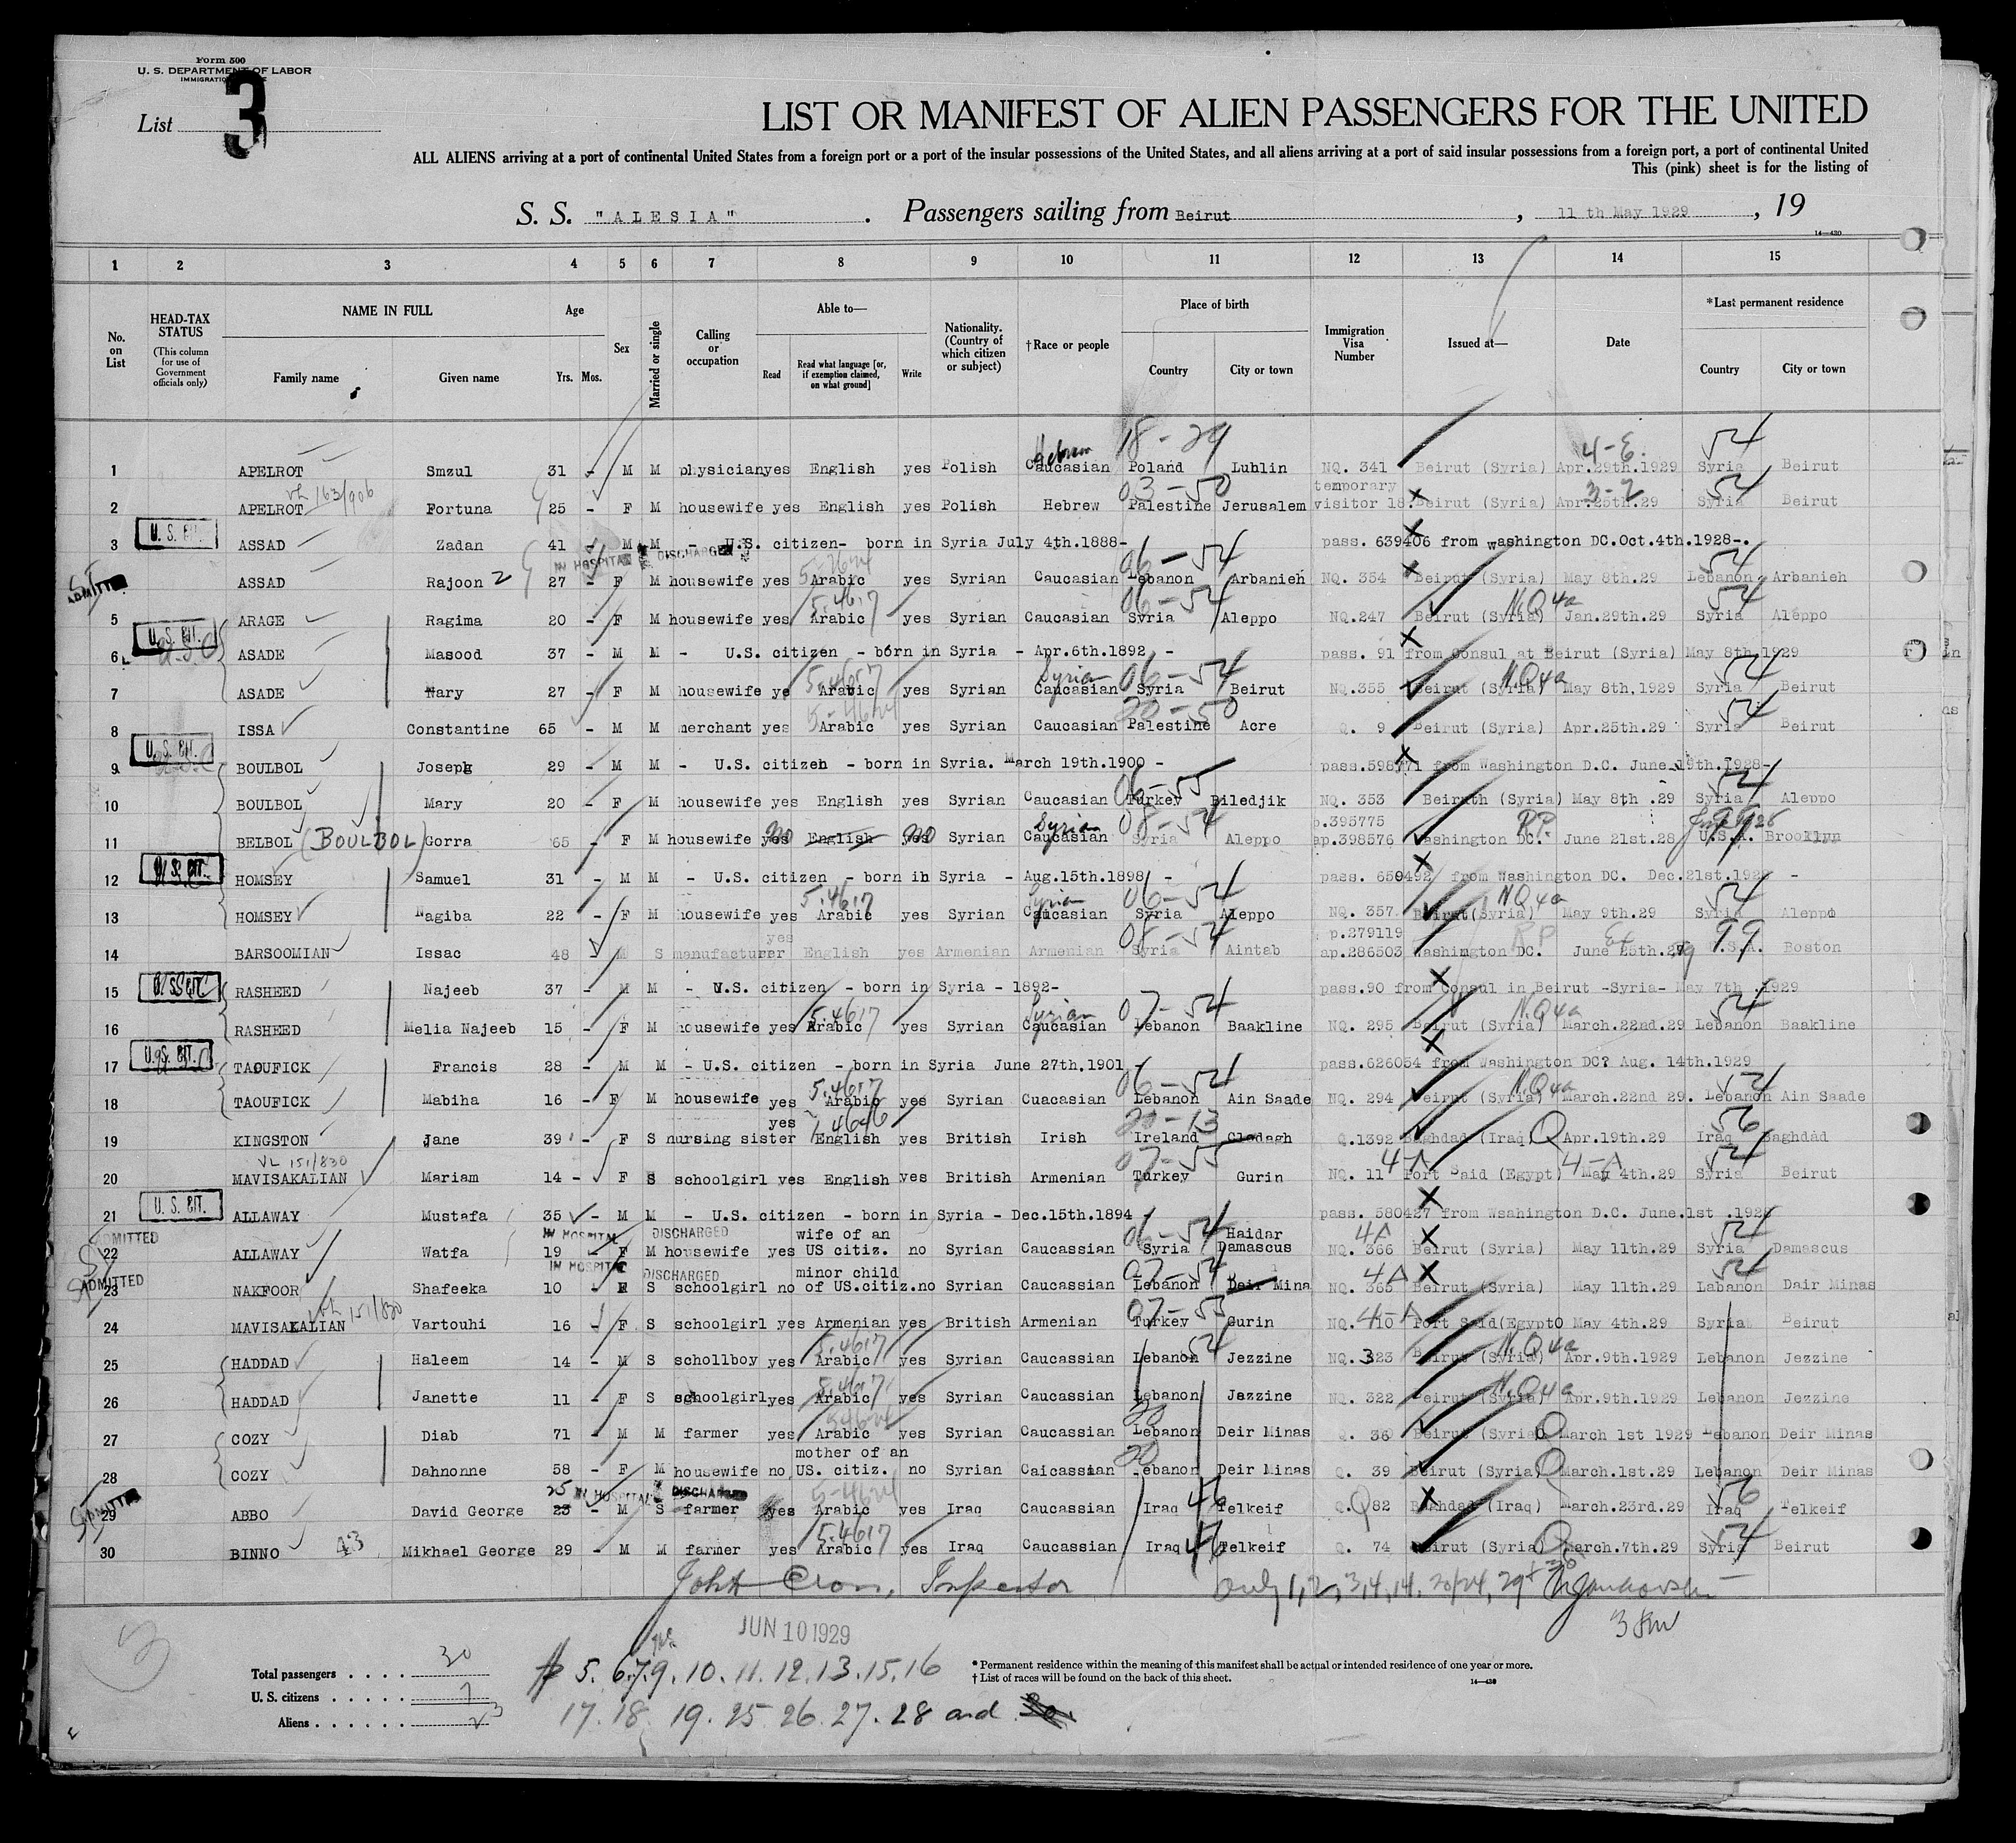 Form 500
U. S. DEPARTMENT OF LABOR
List 3
LIST OR MANIFEST OF ALIEN PASSENGERS FOR THE UNITED
ALL ALIENS arriving at a port of continental United States from a foreign port or a port of the insular possessions of the United States, and all aliens arriving at a port of said insular possessions from a foreign port, a port of continental United
This (pink) sheet is for the listing of
S. S. "ALESIA" . Passengers sailing from Beirut , 11 th May 1929 , 19
14—430
1 2 3 4 5 6 7 8 9 10 11 12 13 14 15
No. on List
HEAD-TAX STATUS (This column for use of Government officials only)
NAME IN FULL Family name Given name
Age Yrs. Mos.
Sex
Married or single
Calling or occupation
Able to— Read Read what language [or, if exemption claimed, on what ground] Write
Nationality. (Country of which citizen or subject)
†Race or people
Place of birth Country City or town
Immigration Visa Number
Issued at—
Date
*Last permanent residence Country City or town
Hebrew 18-29 4-E. 54
1 APELROT Smzul 31 - M M physician yes English yes Polish Caucasian Poland Lublin NQ. 341 Beirut (Syria) Apr.29th.1929 Syria Beirut
VL 163/906 03-50 temporary 3-2 54
2 APELROT Fortuna 25 - F M housewife yes English yes Polish Hebrew Palestine Jerusalem visitor 18. Beirut (Syria) Apr.25th.29 Syria Beirut
U. S. CIT.
3 ASSAD Zadan 41 - M M - U.S. citizen- born in Syria July 4th.1888- pass. 639406 from washington DC.Oct.4th.1928-.
ADMITTED IN HOSPITAL DISCHARGED 06-54 54
ASSAD Rajoon 2 27 - F M housewife yes Arabic yes Syrian Caucasian Lebanon Arbanieh NQ. 354 Beirut (Syria) May 8th.29 Lebanon Arbanieh
5.4617 06-54 N.Q 4a 54
5 ARAGE Ragima 20 - F M housewife yes Arabic yes Syrian Caucasian Syria Aleppo NQ.247 Beirut (Syria) Jan.29th.29 Syria Aleppo
U. S. CIT.
6 ASADE Masood 37 - M M - U.S. citizen - born in Syria - Apr.6th.1892 - pass. 91 from Consul at Beirut (Syria) May 8th.1929
5.4617 Syrian 06-54 N.Q 4a 54
7 ASADE Mary 27 - F M housewife ye Arabic yes Syrian Caucasian Syria Beirut NQ.355 Beirut (Syria) May 8th,1929 Syria Beirut
20-50 54
8 ISSA Constantine 65 - M M merchant yes Arabic yes Syrian Caucasian Palestine Acre Q. 9 Beirut (Syria) Apr.25th.29 Syria Beirut
U. S. CIT.
9 BOULBOL Joseph 29 - M M - U.S. citizen - born in Syria. March 19th.1900 - pass.598771 from Washington D.C. June.19th.1928-
06-55 54
10 BOULBOL Mary 20 - F M housewife yes English yes Syrian Caucasian Turkey Biledjik NQ. 353 Beiruth (Syria) May 8th .29 Syria Aleppo
Syrian 08-54 p.395775 R.P. 99
11 BELBOL (BOULBOL) Gorra 65 - F M housewife yes no English yes no Syrian Caucasian Syria Aleppo ap.398576 Washington DC. June 21st.28 U.S.A. Brooklyn
U. S. CIT.
12 HOMSEY Samuel 31 - M M - U.S. citizen - born in Syria - Aug.15th.1898 - pass. 650492 from Washington DC. Dec.21st.1928 -
5.4617 Syrian 06-54 N.Q 4a 54
13 HOMSEY Nagiba 22 - F M housewife yes Arabic yes Syrian Caucasian Syria Aleppo NQ. 357. Beirut(Syria) May 9th.29 Syria Aleppo
yes 08-54 p.279119 R.P. 99
14 BARSOOMIAN Issac 48 M S manufacturer English yes Armenian Armenian Syria Aintab ap.286503 Washington DC. June 25th.27 U.S.A. Boston
U. S. CIT.
15 RASHEED Najeeb 37 - M M - U.S. citizen - born in Syria - 1892- pass.90 from Consul in Beirut -Syria- May 7th .1929
5.4617 Syrian 07-54 N.Q 4a 54
16 RASHEED Melia Najeeb 15 - F M housewife yes Arabic yes Syrian Caucasian Lebanon Baakline NQ. 295 Beirut (Syria) March.22nd.29 Lebanon Baakline
U. S. CIT.
17 TAOUFICK Francis 28 - M M - U.S. citizen - born in Syria June 27th,1901 - pass.626054 from Washington DC? Aug. 14th.1929
5.4617 06-54 N.Q 4a 54
18 TAOUFICK Mabiha 16 - F M housewife yes Arabic yes Syrian Cuacasian Lebanon Ain Saade NQ. 294 Beirut (Syria) March.22nd 29. Lebanon Ain Saade
yes 20-13 Q 56
19 KINGSTON Jane 39 - F S nursing sister English yes British Irish Ireland Cladagh Q.1392 Baghdad (Iraq) Apr.19th.29 Iraq Baghdad
VL 151/830 07-55 4-A 4-A 54
20 MAVISAKALIAN Mariam 14 - F S schoolgirl yes English yes British Armenian Turkey Gurin NQ. 11 Port Said (Egypt) May 4th.29 Syria Beirut
U. S. CIT.
21 ALLAWAY Mustafa 35 - M M - U.S. citizen - born in Syria - Dec.15th.1894 - pass. 580427 from Wsahington D.C. June.1st .1928
ADMITTED IN HOSPITAL DISCHARGED wife of an 06-54 Haidar 4A 54
22 ALLAWAY Watfa 19 - F M housewife yes US citiz. no Syrian Caucassian Syria Damascus NQ. 366 Beirut (Syria) May 11th.29 Syria Damascus
ADMITTED IN HOSPITAL DISCHARGED minor child 07-54 4A 54
23 NAKFOOR Shafeeka 10 - F S schoolgirl no of US.citiz.no Syrian Caucassian Lebanon Deir Mina NQ. 365 Beirut (Syria) May 11th.29 Labanon Dair Minas
VL 151/830 07-55 4-A
24 MAVISAKALIAN Vartouhi 16 - F S schoolgirl yes Armenian yes British Armenian Turkey Gurin NQ. 10 Port Said(Egypt0 May 4th.29 Syria Beirut
5.4617 54 N.Q 4a
25 HADDAD Haleem 14 - M S schollboy yes Arabic yes Syrian Caucassian Lebanon Jezzine NQ. 323 Beirut (Syria) Apr.9th.1929 Lebanon Jezzine
5.4617 N.Q 4a
26 HADDAD Janette 11 - F S schoolgirl yes Arabic yes Syrian Caucassian Lebanon Jezzine NQ. 322 Beirut (Syria) Apr.9th.1929 Lebanon Jezzine
20 Q
27 COZY Diab 71 - M M farmer yes Arabic yes Syrian Caucassian Lebanon Deir Minas Q. 36 Beirut (Syria) March 1st 1929 Lebanon Deir Minas
mother of an 20 Q
28 COZY Dahnonne 58 - F M housewife no US. citiz. no Syrian Caicassian Lebanon Deir Minas Q. 39 Beirut (Syria) March.1st.29 Lebanon Deir Minas
ADMITTED 25 IN HOSPITAL DISCHARGED 46 56
29 ABBO David George 23 - M S farmer yes Arabic yes Iraq Caucassian Iraq Telkeif Q. 82 Baghdad (Iraq) March.23rd.29 Iraq Telkeif
5.4617 46 Q 54
30 BINNO 43 Mikhael George 29 - M M farmer yes Arabic yes Iraq Caucassian Iraq Telkeif Q. 74 Beirut (Syria) March.7th.29 Syria Beirut
John Inspector Only 1, 2, 3, 4, 14, 20, 24, 29 + 30
JUN 10 1929
Total passengers . . . . 30
U. S. citizens . . . . . 7
Aliens . . . . . . 23
5. 6. 7. 9. 10. 11. 12. 13. 15. 16
17. 18. 19. 25 26. 27. 28 and 30.
* Permanent residence within the meaning of this manifest shall be actual or intended residence of one year or more.
† List of races will be found on the back of this sheet.
14—430